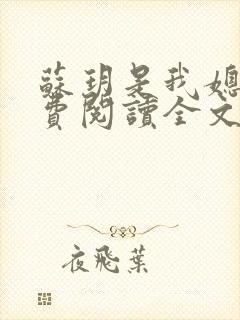 蘇玥是我媳
費閱讀全文
夜飛葉